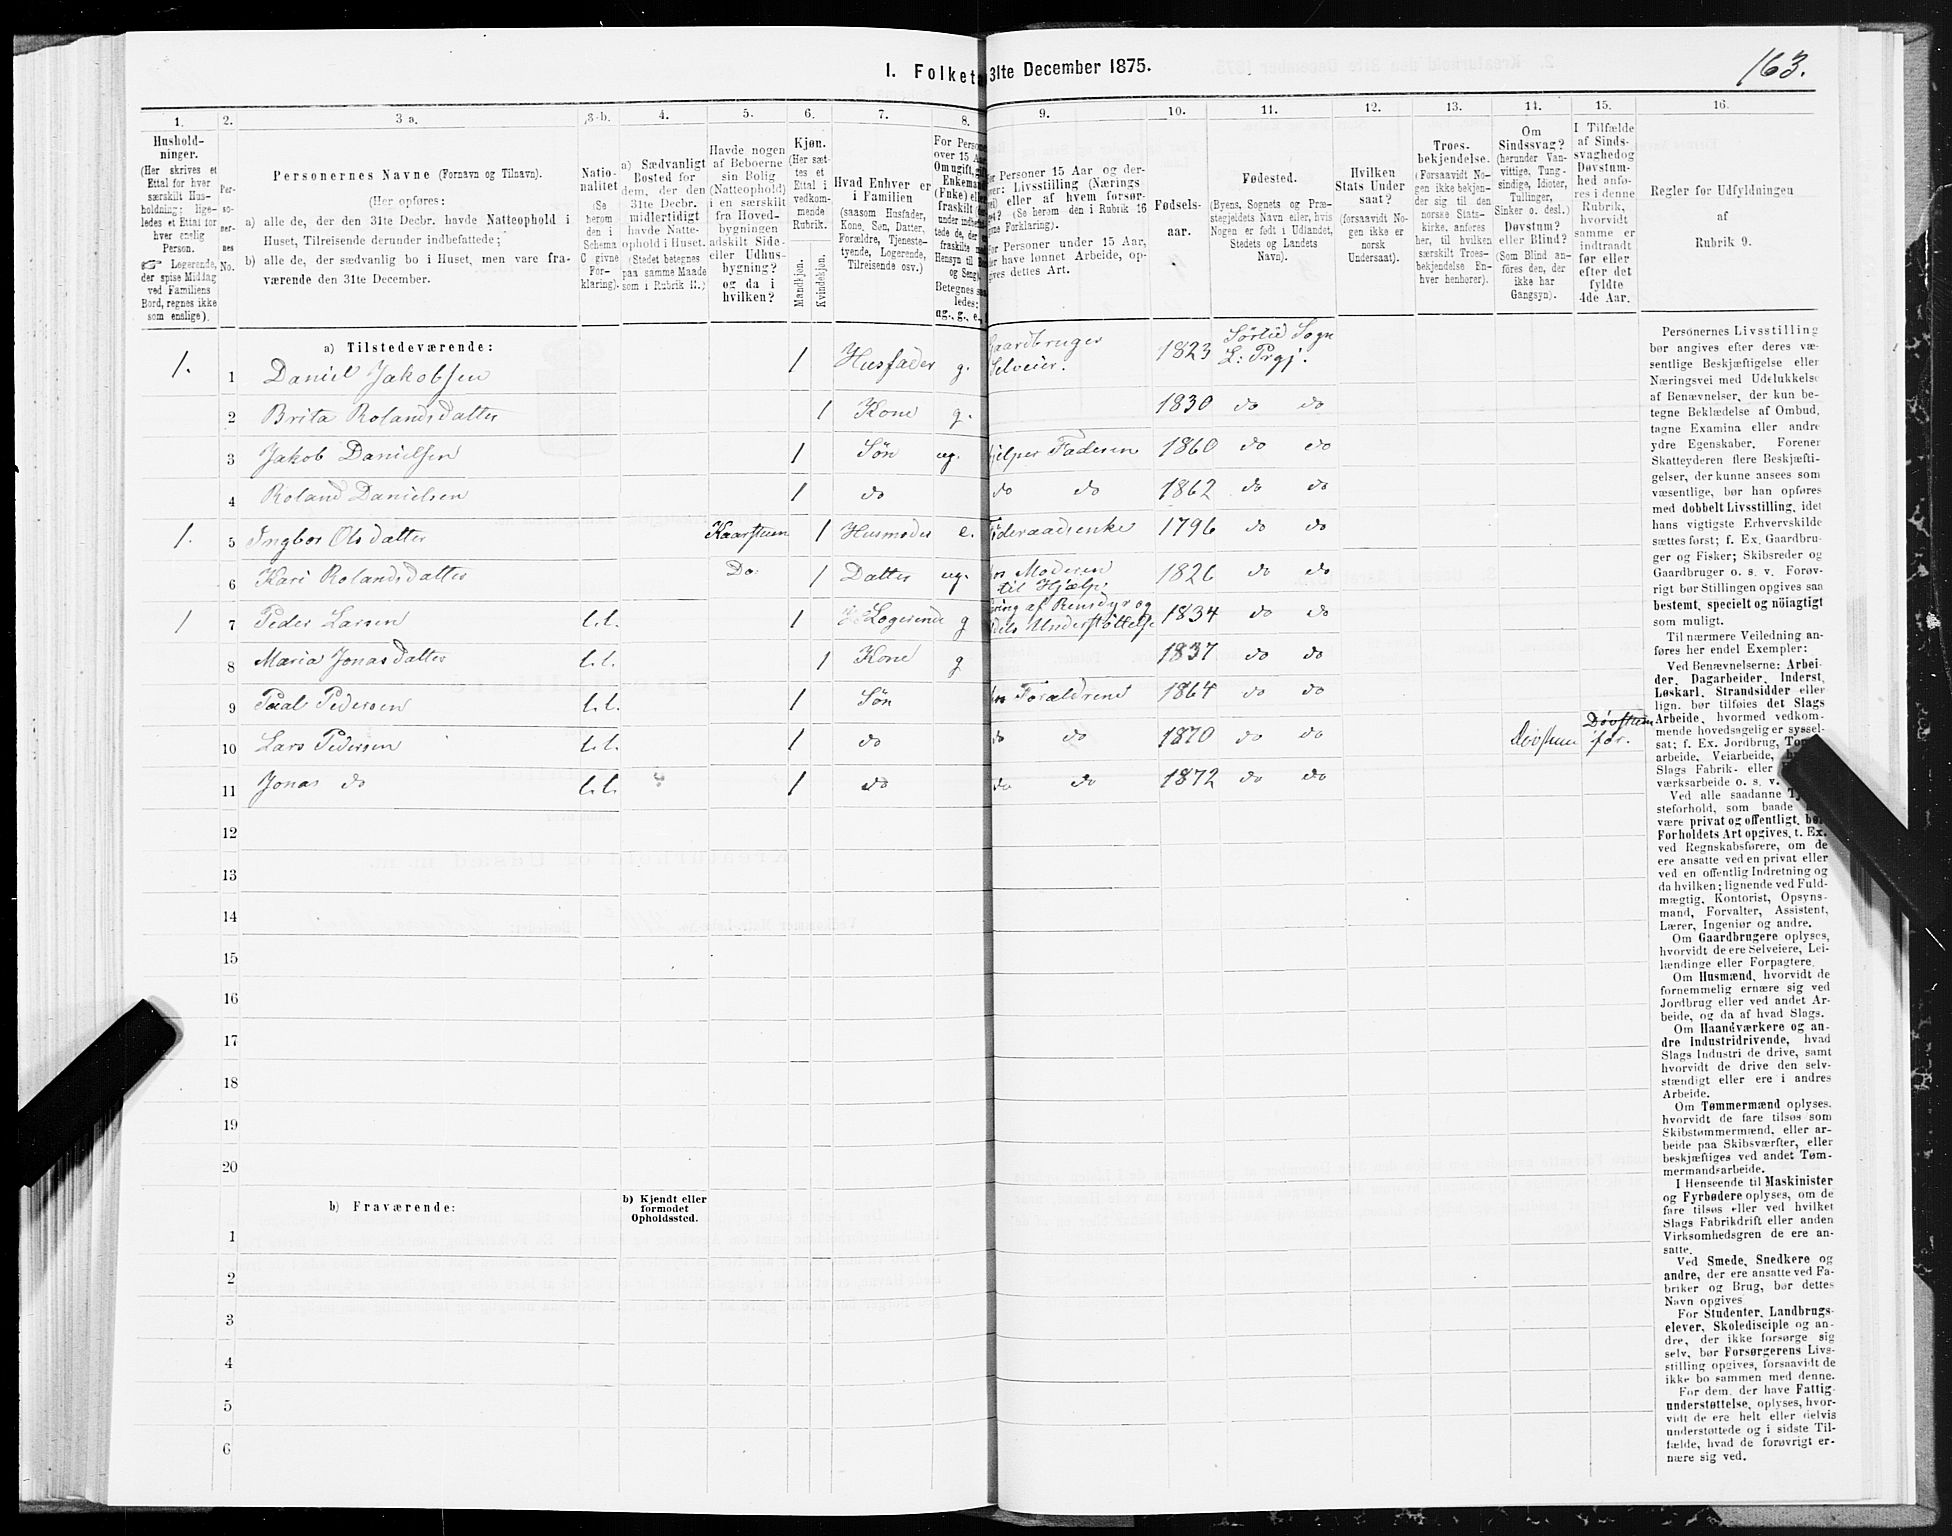 163.
I. Folket
31te December 1875.
1. 2. 3 a. 3-b. 4. 5. 6. 7. 8. 9. 10. 11. 12. 13. 14. 15. 16.
Hushold-
ninger.
(Her skrives et
Ettal for hver
særskilt Hus-
holdning; lige-
ledes et Ettal for
hver enslig
Person.
☞ Logerende,
der spise Middag
ved Familiens
Bord, regnes ikke
som enslige).
Per-
so-
ner-
nes
No.
Personernes Navne (Fornavn og Tilnavn).
(Her opføres:
a) alle de, der den 31te Decbr. havde Natteophold i
Huset, Tilreisende derunder indbefattede;
b) alle de, der sædvanlig bo i Huset, men vare fra-
værende den 31te December.
Natio-
nalitet
(Se
herom
den i
Schema
C givne
For-
klaring).
a) Sædvanligt
Bosted for
dem, der den
31te Decbr.
midlertidigt
havde Natte-
ophold i Huset.
(Stedet betegnes
paa samme Maade
som i Rubrik 11.)
Havde nogen
af Beboerne
sin Bolig
(Natteophold)
i en særskilt
fra Hoved-
bygningen
adskilt Side-
eller Udhus-
bygning?
og da i
hvilken?
Kjøn.
(Her sæt-
tes et
Ettal i
vedkom-
mende
Rubrik.
Mandkjøn.
Kvindekjøn.
Hvad Enhver er
i Familien
(saasom Husfader,
Kone, Søn, Datter,
Forældre, Tjeneste-
tyende, Logerende,
Tilreisende osv.)
For Persone
over 15 Aa
Om ugift, gif
Enkeman
(Enke) elle
fraskilt (
under indbefa
tede de, der e
fraskilte me
Hensyn til Bo
og Seng).
Betegnes saa
ledes:
ug., g., e.,
or Personer 15 Aar og der-
ver: Livsstilling (Nærings
vei) eller af hvem forsør-
get? (Se herom den i Rubrik 16
givne Forklaring).
For Personer under 15 Aar,
der have lønnet Arbeide, op-
gives dettes Art.
Fødsels-
aar.
Fødested.
(Byens, Sognets og Præ-
stegjeldets Navn eller, hvis
Nogen er født i Udlandet,
Stedets og Landets
Navn).
Hvilken
Stats Under
saat?
(forsaavidt No-
gen ikke er
norsk
Undersaat).
Troes-
bekjendelse.
(Forsaavidt No-
gen ikke bekjen-
der sig til den
norske Stats-
kirke, anføres
her, til hvilken
særskilt Troes-
bekjendelse En-
hver henhører).
Om
Sindssvag?
(herunder Van-
vittige, Tung-
sindige, Idioter,
Tullinger,
Sinker o. desl.)
Døvstum?
eller Blind?
(Som Blind an-
føres den, der
ikke har
Gangsyn).
I Tilfælde
af Sinds-
svaghed og
Døvstum-
hed anfø-
res i denne
Rubrik,
hvorvidt
samme er
indtraadt
før eller
efter det
fyldte
4de Aar.
Regler for Udfyldningen
af
Rubrik 9.
a) Tilstedeværende:
1. 1 Daniel Jakobsen 1 Husfader g. Gaardbruger Selveier. 1823 Sørlid Sogn L: Prgj.
2 Brita Rolandsdatter 1 Kone g. 1830 do do
3 Jakob Danielsen 1 Søn ug. hjelper Faderen 1860 do do
4 Roland Danielsen 1 do do do 1862 do do
1. 5 Ingbor Olsdatter Kaarstuen 1 Husmoder e. Føderaadsenke 1796 do do
6 Kari Rolandsdatter Do: 1 Datter ug. hos Moderen til Hjælp 1826 do do
1 7 Peder Larsen l.l. 1 Logerende g Næring af Rensdyr og dels Understøttelse 1834 do do
8 Maria Jonasdatter l.l. 1 Kone g 1837 do do
9 Paal Pedersen l.l. 1 Søn hos Forældrene 1864 do do
10 Lars Pedersen l.l. 1 do do do 1870 do do Døvstum Døvstum før.
11 Jonas do l.l. 1 do do do 1872 do do
12
13
14
15
16
17
18
19
20
b) Fraværende:
b) Kjendt eller
formodet
Opholdssted.
1
2
3
4
5
6
Personernes Livsstilling
bør angives efter deres væ-
sentlige Beskjæftigelse eller
Næringsvei med Udelukkelse
af Benævnelser, der kun be-
tegne Beklædelse af Ombud,
tagne Examina eller andre
ydre Egenskaber. Forener
Skatteyderen flere Beskjæfti-
gelser, der kunne ansees som
væsentlige, bør han opføres
med dobbelt Livsstilling, idet
hans vigtigste Erhvervskilde
sættes først; f. Ex. Gaardbru-
ger og Fisker; Skibsreder og
Gaardbruger o. s. v. Forøv-
rigt bør Stillingen opgives saa
bestemt, specielt og nøiagtigt
som muligt.
Til nærmere Veiledning an-
føres her endel Exempler:
Ved Benævnelserne: Arbei-
der, Dagarbeider, Inderst,
Løskarl, Strandsidder eller
lign. bør tilføies det Slags
Arbeide, hvormed vedkom-
mende hovedsagelig er syssel-
sat; f. Ex. Jordbrug, Tom
arbeide, Veiarbeide,
Slags Fabrik- eller
værksarbeide o. s. v.
Ved alle saadanne Tj
steforhold, som baade
være privat og offentligt, bør
Forholdets Art opgives, t. Ex.
ved Regnskabsførere, om de
ere ansatte ved en privat eller
ved en offentlig Indretning og
da hvilken; lignende ved Fuld-
mægtig, Kontorist, Opsyns-
mand, Forvalter, Assistent,
Lærer, Ingeniør og andre.
Om Gaardbrugere oplyses,
hvorvidt de ere Selveiere, Lei-
lændinge eller Forpagtere.
Om Husmænd, hvorvidt de
fornemmelig ernære sig ved
Jordbrug eller ved andet Ar-
beide, og da af hvad Slags.
Om Haandværkere og an-
dre Industridrivende, hvad
Slags Industri de drive, samt
hvorvidt de drive den selv-
stændigt eller ere i andres
Arbeide.
Om Tømmermænd oplyses,
hvorvidt de fare tilsøs som
Skibstømmermænd, eller ar-
beide paa Skibsværfter, eller
beskjæftiges ved andet Tøm-
mermandsarbeide.
I Henseende til Maskinister
og Fyrbødere oplyses, om de
fare tilsøs eller ved hvilket
Slags Fabrikdrift eller anden
Virksomhedsgren de ere an-
satte.
Ved Smede, Snedkere og
andre, der ere ansatte ved Fa-
briker og Brug, bør dettes
Navn opgives
For Studenter, Landbrugs-
elever, Skoledisciple og an-
dre, der ikke forsørge sig
selv, bør Forsørgerens Livs-
stilling opgives, forsaavidt de
ikke bo sammen med denne.
For dem, der have Fattig-
understøttelse, oplyses, hvor-
vidt de ere helt eller delvis
understøttede og i sidste Til-
fælde, hvad de forøvrigt er-
nære sig ved.